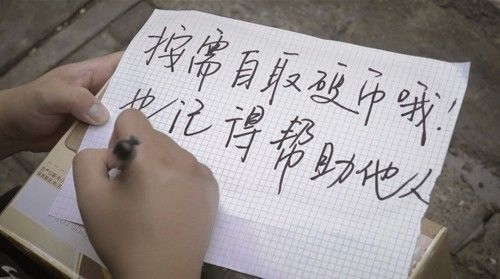 按需自取硬币哦！
也记得帮助他人